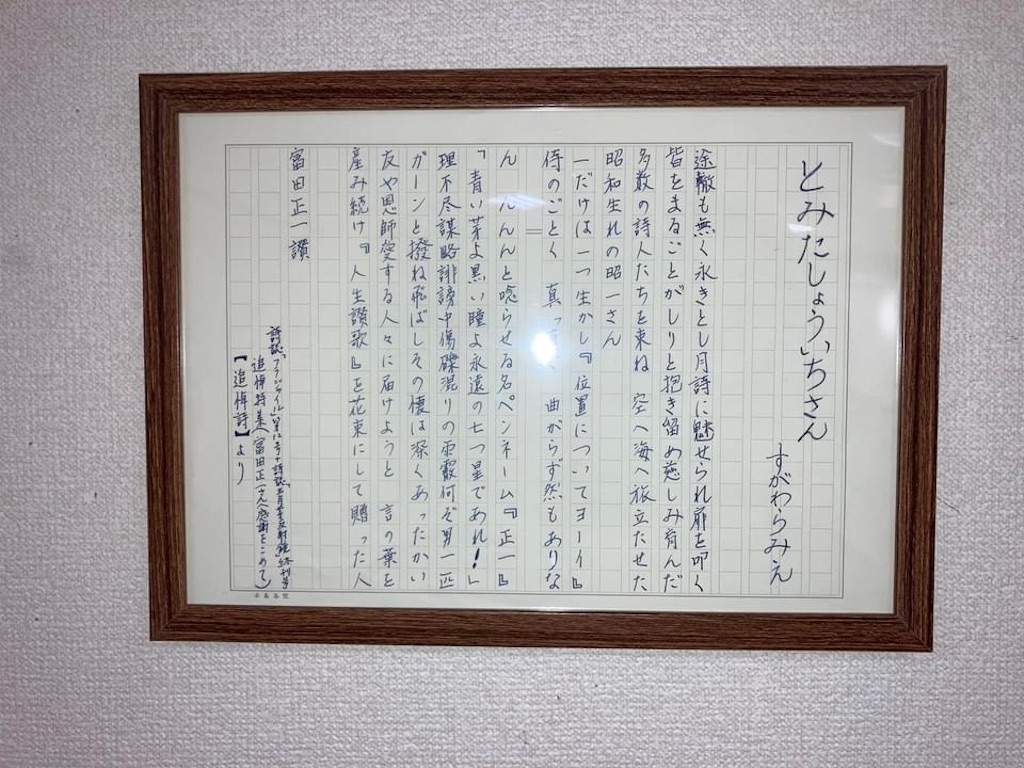 とみたしょういちさん
すがわらみえ
途轍も無く永きとし月詩に魅せられ扉を叩く
皆をまるごとがしりと抱き留め慈しみ育んだ
多数の詩人たちを束ね 空へ海へ旅立たせた
昭和生れの昭一さん
一だけは一つ生かし『位置についてヨーイ』
侍のごとく 真っ 曲がらず然もありな
ん んんんと唸らせる名ペンネーム『正一』
「青い芽よ黒い瞳よ永遠の七つ星であれ！」
理不尽謀略誹謗中傷礫混りの雨霰何ぞ男一匹
ガーンと撥ね飛ばしその懐は深くあったかい
友や恩師愛する人々に届けようと 言の葉を
産み続け『人生讃歌』を花束にして贈った人
富田正一讃
詩誌「フラジャイル」第12号+詩誌「青芽反射鏡」終刊号
追悼特集（富田正一さんへ感謝をこめて）
【追悼詩】より